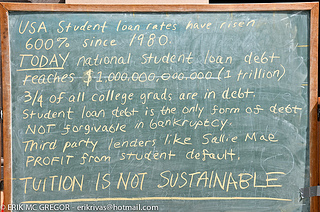 USA Student loan rates have risen
600% since 1980.
TODAY national student loan debt
reaches $1,000,000,000,000 (1 trillion)
3/4 of all college grads are in debt.
Student loan debt is the only form of debt
NOT forgivable in bankruptcy.
Third party lenders like Sallie Mae
PROFIT from student default.
TUITION IS NOT SUSTAINABLE
© ERIK MC GREGOR - erikrivas@hotmail.com